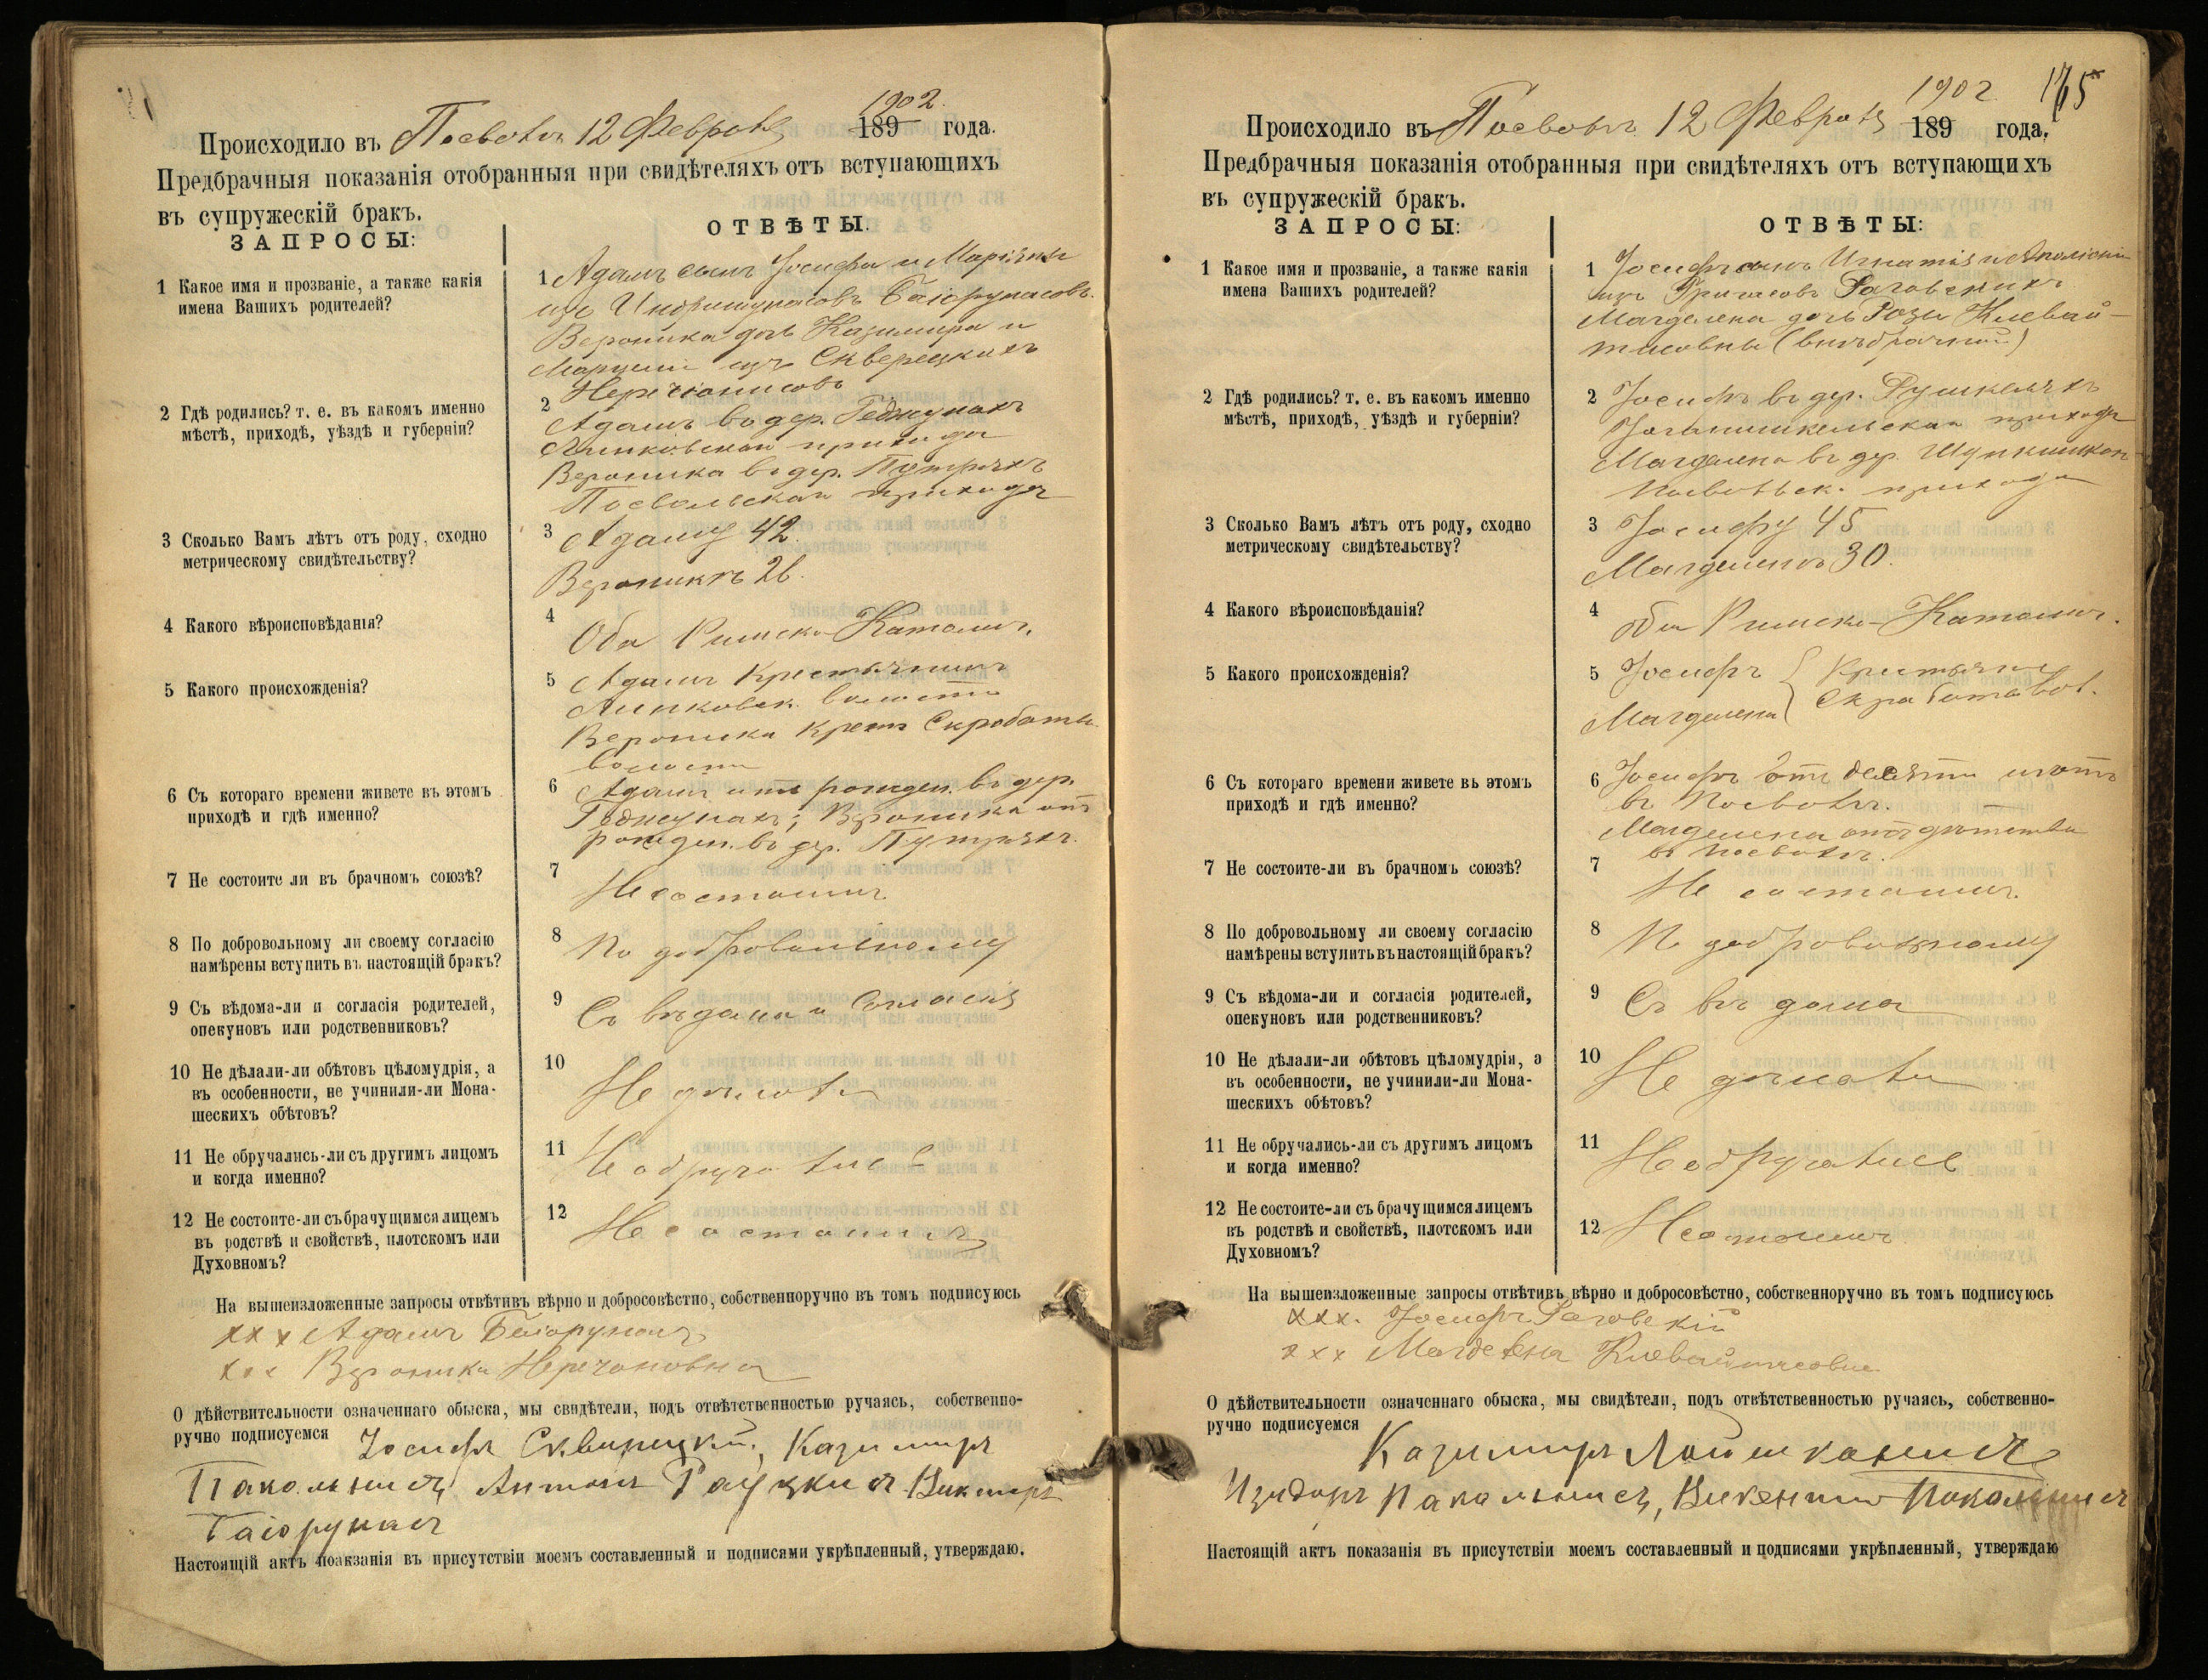 1902.
Происходило въ Посволѣ 12 Февраля 189 года.
Предбрачныя показанія отобранныя при свидѣтеляхъ отъ вступающихъ
въ супружескій бракъ.
ЗАПРОСЫ:
ОТВѢТЫ.
1 Какое имя и прозваніе, а также какія
имена Вашихъ родителей?
1 Адамъ сынъ Іосифа и Маріянны
изъ Гаюрунасовъ.
Вероника дочь Казимира и
изъ Скверецкихъ
2 Гдѣ родились? т. е. въ какомъ именно
мѣстѣ, приходѣ, уѣздѣ и губерніи?
2
Адамъ въ дер.
прихода
Вероника въ дер.
Посвольскаго прихода
3 Сколько Вамъ лѣтъ отъ роду, сходно
метрическому свидѣтельству?
3 Адаму 42.
Вероникѣ 26.
4 Какого вѣроисповѣданія?
4
Оба Римско-Католич.
5 Какого происхожденія?
5 Адамъ Крестьянинъ
волости
Вероника Крест. Скробот.
волости
6 Съ котораго времени живете въ этомъ
приходѣ и гдѣ именно?
6 Адамъ отъ рожден. въ дер.
Вероника отъ
рожден. въ дер.
7 Не состоите ли въ брачномъ союзѣ?
7
Не состоимъ
8 По добровольному ли своему согласію
намѣрены вступить въ настоящій бракъ?
8
По добровольному
9 Съ вѣдома-ли и согласія родителей,
опекуновъ или родственниковъ?
9
Съ вѣдома и согласія
10 Не дѣлали-ли обѣтовъ цѣломудрія, а
въ особенности, не учинили-ли Мона-
шескихъ обѣтовъ?
10
Не дѣлали
11 Не обручались-ли съ другимъ лицомъ
и когда именно?
11
Не обручались
12 Не состоите-ли съ брачущимся лицемъ
въ родствѣ и свойствѣ, плотскомъ или
Духовномъ?
12
Не состоимъ
На вышеизложенные запросы отвѣтивъ вѣрно и добросовѣстно, собственноручно въ томъ подписуюсь
ххх Адамъ
ххх Вероника
О дѣйствительности означеннаго обыска, мы свидѣтели, подъ отвѣтственностью ручаясь, собственно-
ручно подписуемся Іосифъ Сквирецкій, Казимиръ
Покольнисъ, Антонъ Викторъ
Гаюрунасъ
Настоящій актъ поакзанія въ присутствіи моемъ составленный и подписями укрѣпленный, утверждаю.
1902.
165
Происходило въ Посволѣ 12 Февраля 189 года.
Предбрачныя показанія отобранныя при свидѣтеляхъ отъ вступающихъ
въ супружескій бракъ.
ЗАПРОСЫ:
ОТВѢТЫ:
1 Какое имя и прозваніе, а также какія
имена Вашихъ родителей?
1 Іосифъ сынъ Игнатія и Аполоніи
изъ Раговскихъ
Магделена дочь Розы Клевай-
тисовны (внѣбрачной)
2 Гдѣ родились? т. е. въ какомъ именно
мѣстѣ, приходѣ, уѣздѣ и губерніи?
2 Іосифъ въ дер.
Іоганишкельскаго прихода
Магделена въ дер.
Посвольск. прихода
3 Сколько Вамъ лѣтъ отъ роду, сходно
метрическому свидѣтельству?
3 Іосифу 45
Магделенѣ 30.
4 Какого вѣроисповѣданія?
4
Оба Римско-Католич.
5 Какого происхожденія?
5 Іосифъ Крестьяне
Магделена вол.
6 Съ котораго времени живете въ этомъ
приходѣ и гдѣ именно?
6 Іосифъ отъ десяти лѣтъ
въ Посволѣ.
Магделена отъ дѣтства
въ Посволѣ.
7 Не состоите-ли въ брачномъ союзѣ?
7
Не состоимъ.
8 По добровольному ли своему согласію
намѣрены вступить въ настоящій бракъ?
8
По добровольному
9 Съ вѣдома-ли и согласія родителей,
опекуновъ или родственниковъ?
9
Съ вѣдома
10 Не дѣлали-ли обѣтовъ цѣломудрія, а
въ особенности, не учинили-ли Мона-
шескихъ обѣтовъ?
10
Не дѣлали
11 Не обручались-ли съ другимъ лицомъ
и когда именно?
11
Не обручались
12 Не состоите-ли съ брачущимся лицемъ
въ родствѣ и свойствѣ, плотскомъ или
Духовномъ?
12
Не состоимъ
На вышеизложенные запросы отвѣтивъ вѣрно и добросовѣстно, собственноручно въ томъ подписуюсь
ххх. Іосифъ Раговскій
ххх Магделена Клевайтисовна
О дѣйствительности означеннаго обыска, мы свидѣтели, подъ отвѣтственностью ручаясь, собственно-
ручно подписуемся
Казимиръ
Изидоръ Покальнисъ, Викентій Покальнисъ
Настоящій актъ показанія въ присутствіи моемъ составленный и подписями укрѣпленный, утверждаю